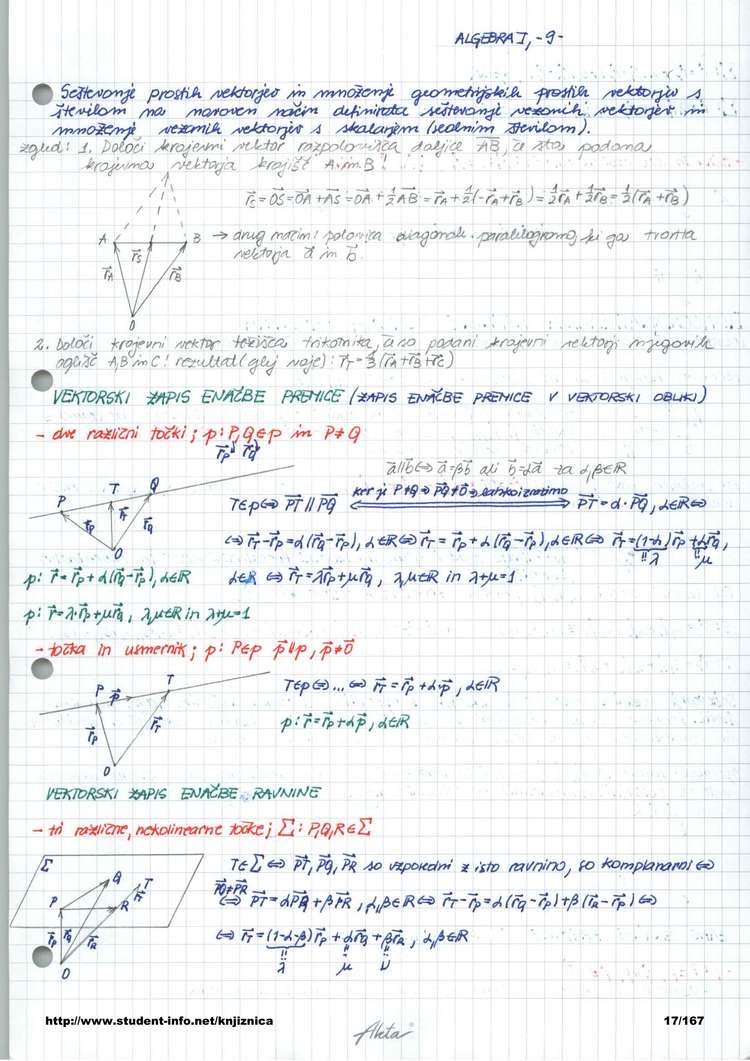 ALGEBRA I, -9-
Seštevanje prostih vektorjev in množenje geometrijskih prostih vektorjev s
številom na naraven način definirata seštevanje vezanih vektorjev in
množenje vezanih vektorjev s skalarjem (realnim številom).
zgled: 1. Določi krajevni vektor razpolovišča daljice AB, če sta podana
krajevna vektorja krajišč A in B!
r⃗S = O⃗S = O⃗A + A⃗S = O⃗A + ½A⃗B = r⃗A + ½(-r⃗A + r⃗B) = ½r⃗A + ½r⃗B = ½(r⃗A + r⃗B)
A B → drug način: polovica diagonale paralelograma, ki ga tvorita
r⃗A r⃗S r⃗B vektorja a⃗ in b⃗.
O
2. Določi krajevni vektor težišča trikotnika, če so podani krajevni vektorji njegovih
oglišč A, B in C! rezultat (glej vaje): r⃗T = ⅓(r⃗A + r⃗B + r⃗C)
VEKTORSKI ZAPIS ENAČBE PREMICE (ZAPIS ENAČBE PREMICE V VEKTORSKI OBLIKI)
- dve različni točki; p: P, Q ∈ p in P ≠ Q
r⃗P r⃗Q
a⃗ ∥ b⃗ ⇔ a⃗ = βb⃗ ali b⃗ = αa⃗ za α, β ∈ ℝ
P T Q
T ∈ p ⇔ P⃗T ∥ P⃗Q ker je P ≠ Q ⇒ P⃗Q ≠ 0⃗ ⇒ lahko izrazimo P⃗T = α · P⃗Q, α ∈ ℝ ⇔
r⃗P r⃗T r⃗Q
O
⇔ r⃗T - r⃗P = α(r⃗Q - r⃗P), α ∈ ℝ ⇔ r⃗T = r⃗P + α(r⃗Q - r⃗P), α ∈ ℝ ⇔ r⃗T = (1-α)r⃗P + αr⃗Q,
λ μ
p: r⃗ = r⃗P + α(r⃗Q - r⃗P), α ∈ ℝ α ∈ ℝ ⇔ r⃗T = λr⃗P + μr⃗Q, λ, μ ∈ ℝ in λ + μ = 1
p: r⃗ = λ·r⃗P + μr⃗Q, λ, μ ∈ ℝ in λ + μ = 1
- točka in usmernik; p: P ∈ p p⃗ ∥ p, p⃗ ≠ 0⃗
P p⃗ T
T ∈ p ⇔ ... ⇔ r⃗T = r⃗P + α·p⃗, α ∈ ℝ
r⃗P r⃗T
p: r⃗ = r⃗P + αp⃗, α ∈ ℝ
O
VEKTORSKI ZAPIS ENAČBE RAVNINE
- tri različne, nekolinearne točke; Σ: P, Q, R ∈ Σ
Σ Q T P R
T ∈ Σ ⇔ P⃗T, P⃗Q, P⃗R so vzporedni z isto ravnino, so komplanarni ⇔
P⃗Q ∦ P⃗R
⇔ P⃗T = αP⃗Q + βP⃗R, α, β ∈ ℝ ⇔ r⃗T - r⃗P = α(r⃗Q - r⃗P) + β(r⃗R - r⃗P) ⇔
r⃗P r⃗Q r⃗R r⃗T
⇔ r⃗T = (1-α-β)r⃗P + αr⃗Q + βr⃗R, α, β ∈ ℝ
λ μ ν
O
http://www.student-info.net/knjiznica
17/167
Akta